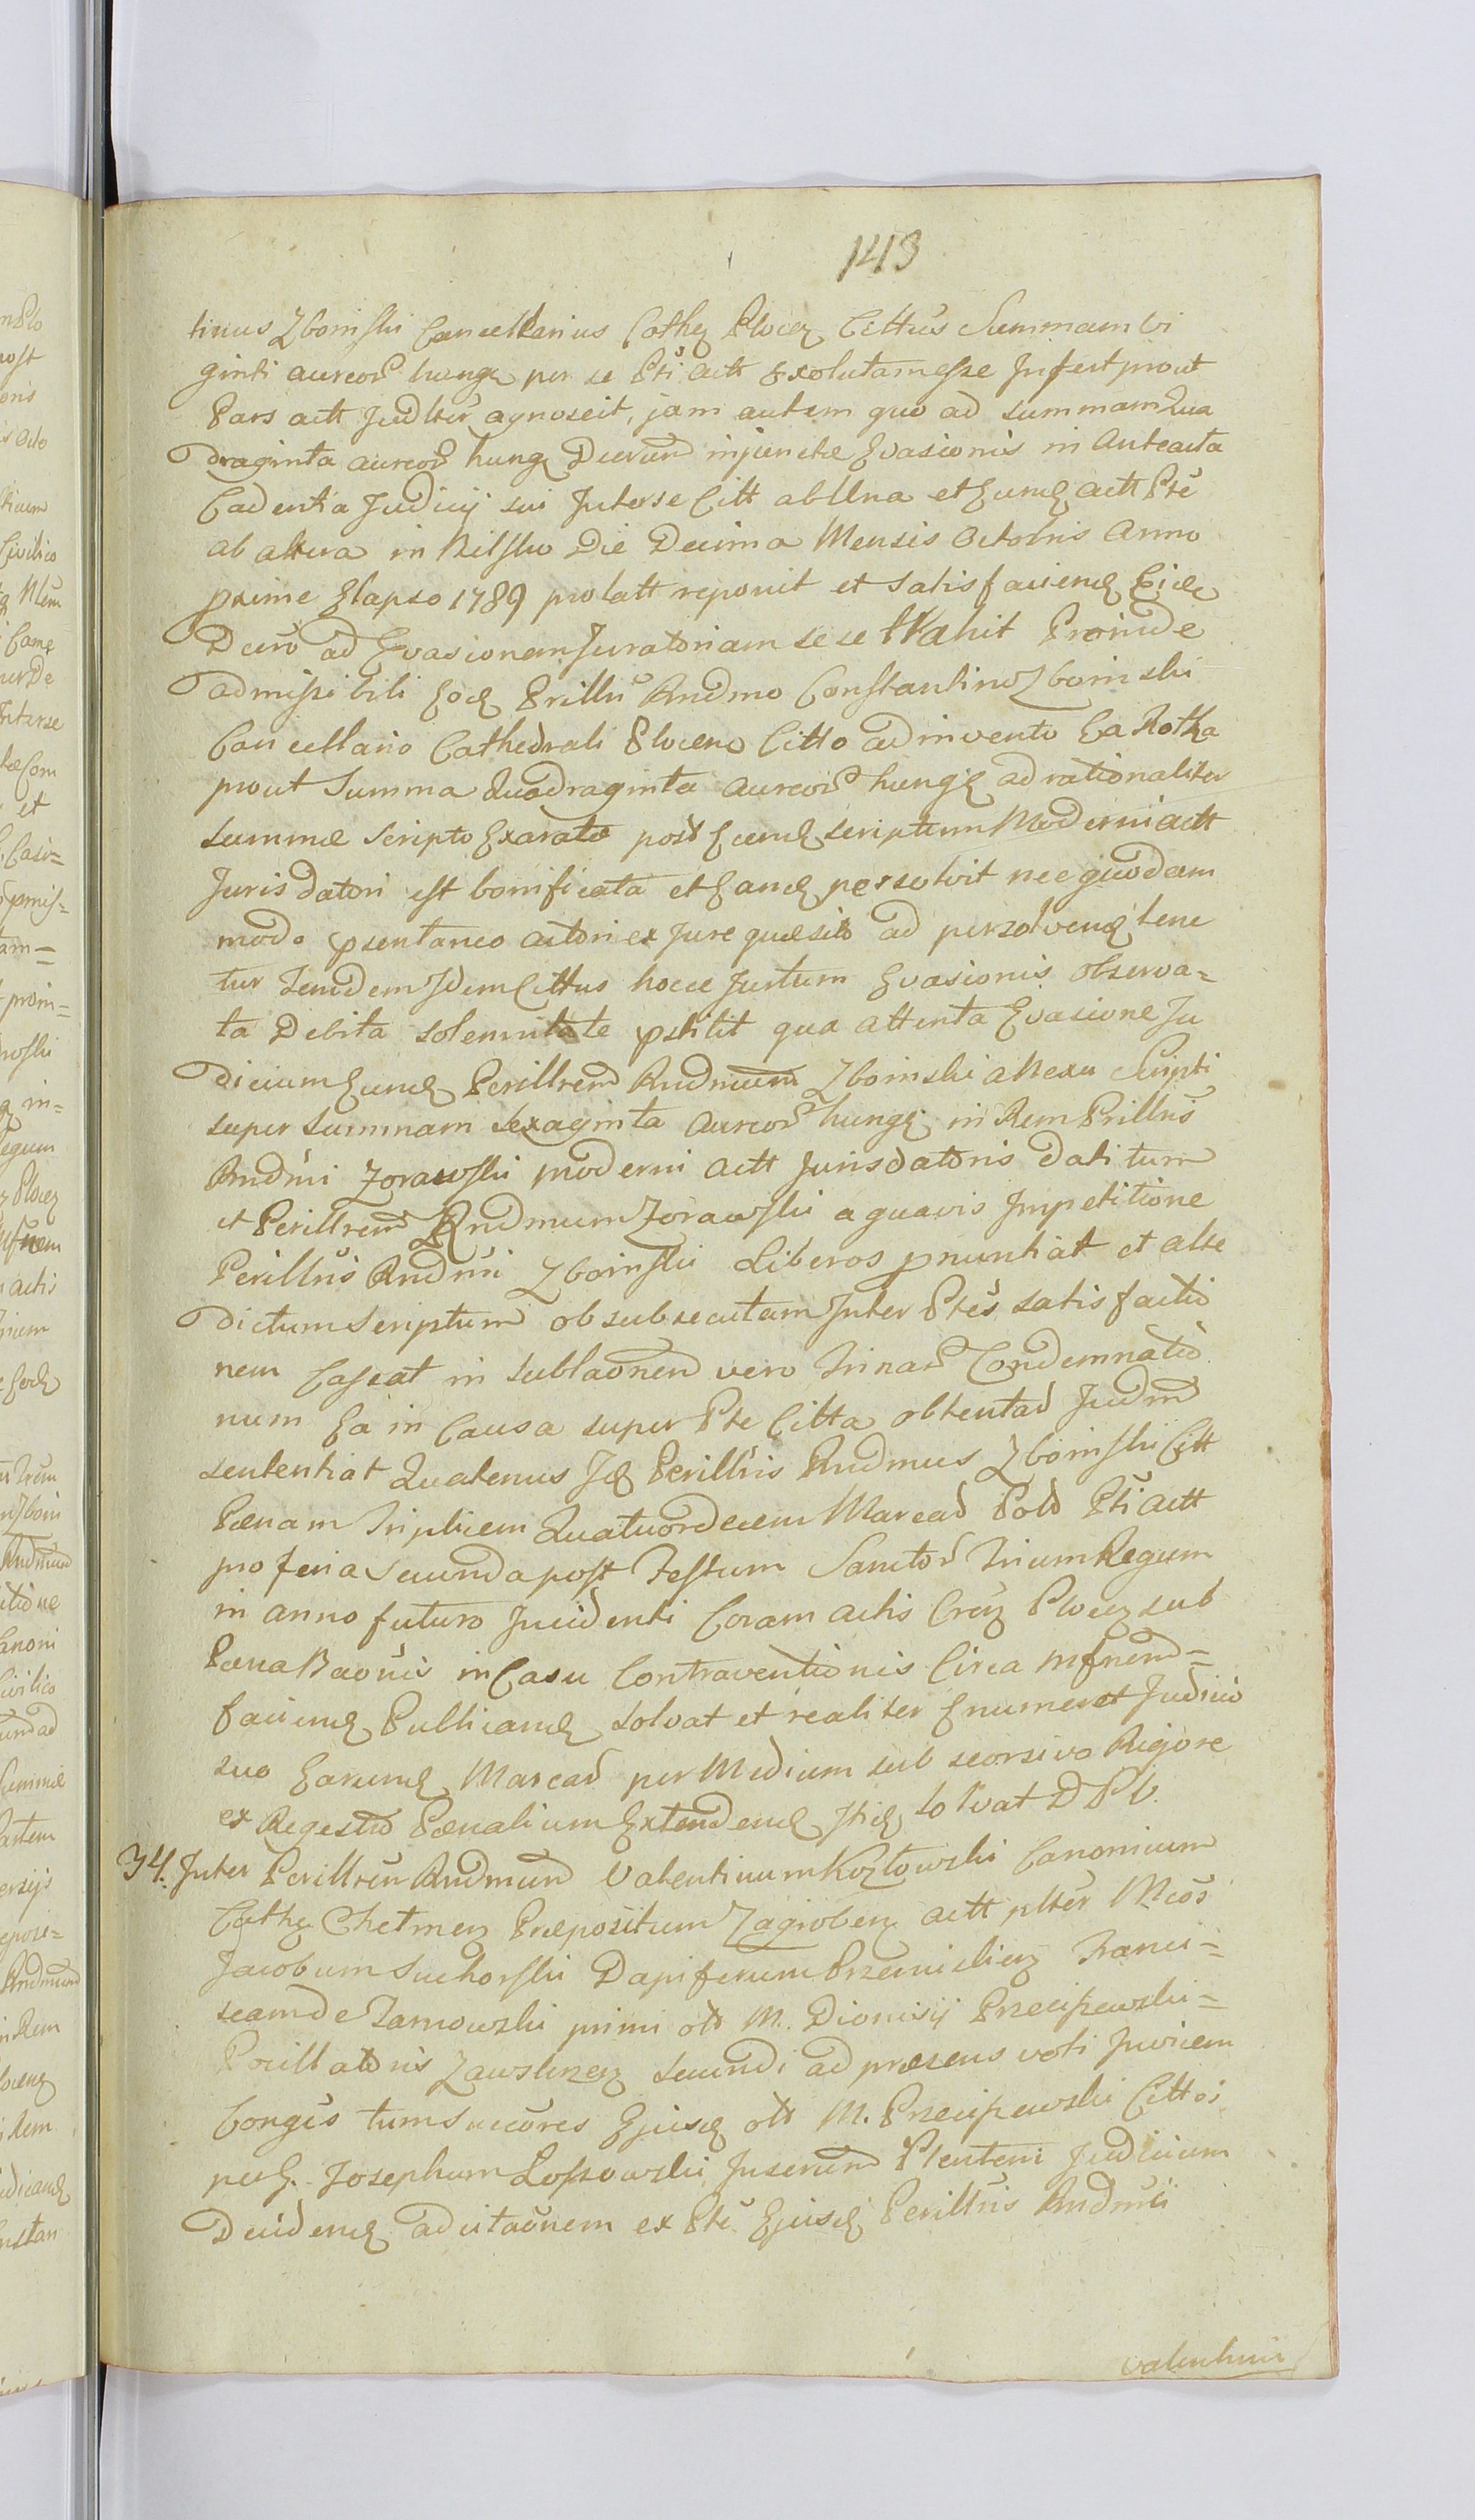 143
tinus Zboinski Cancellarius Cathe Plocen Cittus Summam vi
ginti aureor hunge per se Pti actt Exolutam esse Infert prout
Pars actt Judlter agnoscit, jam autem quo ad summam Qua
draginta aureor hung Decreto injunctae Evasionis in Anteacta
Cadentia Judicij sui Inter se Citt ab Una et Eund actt Pte
ab altera in Bielsko Die Decima Mensis Octobris Anno
proxime Elapso 1789 prolatt reponit et satisfaciend Eid
Decro ad Evasionem Juratoriam sese ttrahit Proinde
admissibili Eod Prillri Rndmo Constantino Zboinski
Cancellario Cathedrali Plocen Citto adinvento Ea Rotha
prout Summa Quadraginta aureor hung adrationaliter
summae scripto Exaratae post Eund scriptum Moderni actt
Juris datori est bonificata et Eand persolvit nec quodam
modo psentaneo actori ex Jure quaesito ad persolvend tene
tur Tandem Idem Cittus hocce Jurtum Evasionis observa=
ta Debita solemnitate pstitit qua attenta Evasione Ju
dicium Eund Perillrem Rndmum Zboinski a Nexu Scripti
super summam sexaginta aureor hung in Rem Prillris
Rndmi Zorawski moderni actt Jurisdatoris dati tum
et Perillrem Rndmum Zorawski a quavis Impetitione
Perillris Rndmi Zboinski Liberos pnuntiat et alte
dictum scriptum ob subsecutam Inter Ptes satisfactio
nem Cassat in sublaonem vero Trinar Condemnatio
num Ea in Causa super Pte Citta obtentar Judm
sententiat Quatenus Id Perillris Rndmus Zboinski Citt
Paenam Triplicem Quatuordecem Marcar Pold Pti actt
pro feria secunda post Festum Sanctor Trium Regum
in anno futuro Incidenti Coram actis Crez Plocen sub
Paena Baonis in Casu Contraventionis Circa
faciend Publicand solvat et realiter Enumeret Judicio
suo Earund Marcar per Medium sub seorsivo Rigore
ex Regestro Paenalium Extendend Itid solvat D P V.
34. Inter Perillrem Rndmum Valentinum Kozłowski Canonicum
Cathe Chełmen Praepositum Zagroben actt plter Mcos
Jacobum Suchorski Dapiferum Przemislien Franci=
scam de Tarnowski primi ott M. Dionisij Przeciszewski=
Pocillatoris Zawskrzen secundi ad praesens voti Invicem
Congis tum Succores Ejusd ott M. Przeciszewski Cittos
per G. Josephum Lossowski Juserum Ptentem Judicium
Decidend ad citaonem ex Pte Ejusd Perillris Rndmi
Valentini